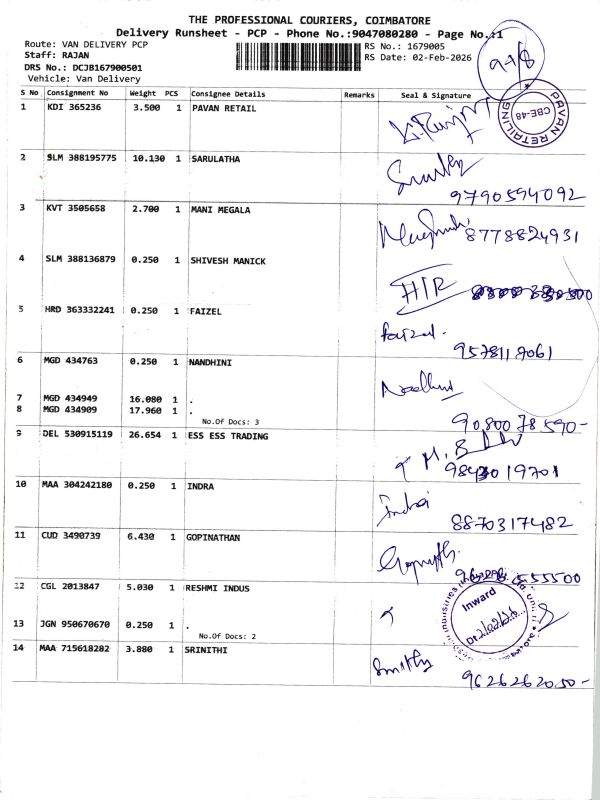 THE PROFESSIONAL COURIERS, COIMBATORE
Delivery Runsheet - PCP - Phone No.:9047080280 - Page No.:1
Route: VAN DELIVERY PCP
RS No.: 1679005
Staff: RAJAN
RS Date: 02-Feb-2026
DRS No.: DCJB167900501
Vehicle: Van Delivery
S No Consignment No Weight PCS Consignee Details Remarks Seal & Signature
1 KDI 365236 3.500 1 PAVAN RETAIL
PAVAN RETAILING
CBE-48
2 SLM 388195775 10.130 1 SARULATHA
9790594092
3 KVT 3505658 2.700 1 MANI MEGALA
8778824931
4 SLM 388136879 0.250 1 SHIVESH MANICK
5 HRD 363332241 0.250 1 FAIZEL
faizal.
9578117061
6 MGD 434763 0.250 1 NANDHINI
7 MGD 434949 16.080 1 .
8 MGD 434909 17.960 1 .
No.Of Docs: 3
9080078590-
9 DEL 530915119 26.654 1 ESS ESS TRADING
10 MAA 304242180 0.250 1 INDRA
8870317482
11 CUD 3490739 6.430 1 GOPINATHAN
12 CGL 2013847 5.030 1 RESHMI INDUS
Inward
13 JGN 950670670 0.250 1 .
No.Of Docs: 2
14 MAA 715618282 3.880 1 SRINITHI
9626262050-